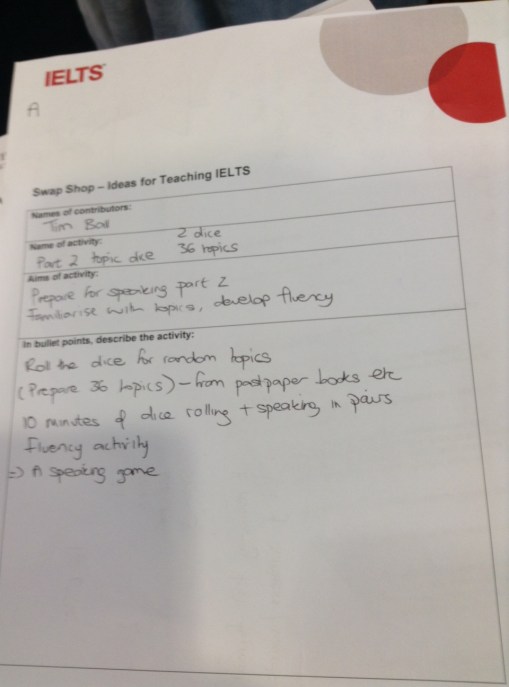 IELTS
A
Swap Shop – Ideas for Teaching IELTS
Names of contributors:
Tim Ball
2 dice
Name of activity:
Part 2 topic dice
36 topics
Aims of activity:
Prepare for speaking part 2
Familiarise with topics, develop fluency
In bullet points, describe the activity:
Roll the dice for random topics
(Prepare 36 topics) – from past paper books etc
10 minutes of dice rolling + speaking in pairs
fluency activity
=> A speaking game